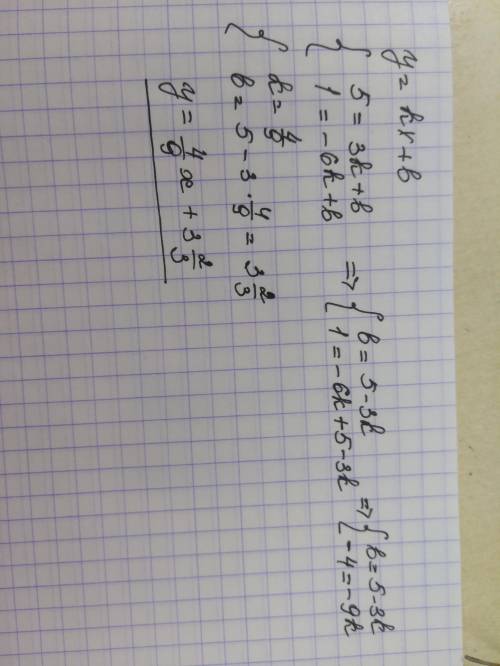 y = kx + b
{ 5 = 3k + b
1 = -6k + b => { b = 5 - 3k
1 = -6k + 5 - 3k => { b = 5 - 3k
-4 = -9k
{ k = 4/9
b = 5 - 3 · 4/9 = 3 2/3
y = 4/9 x + 3 2/3